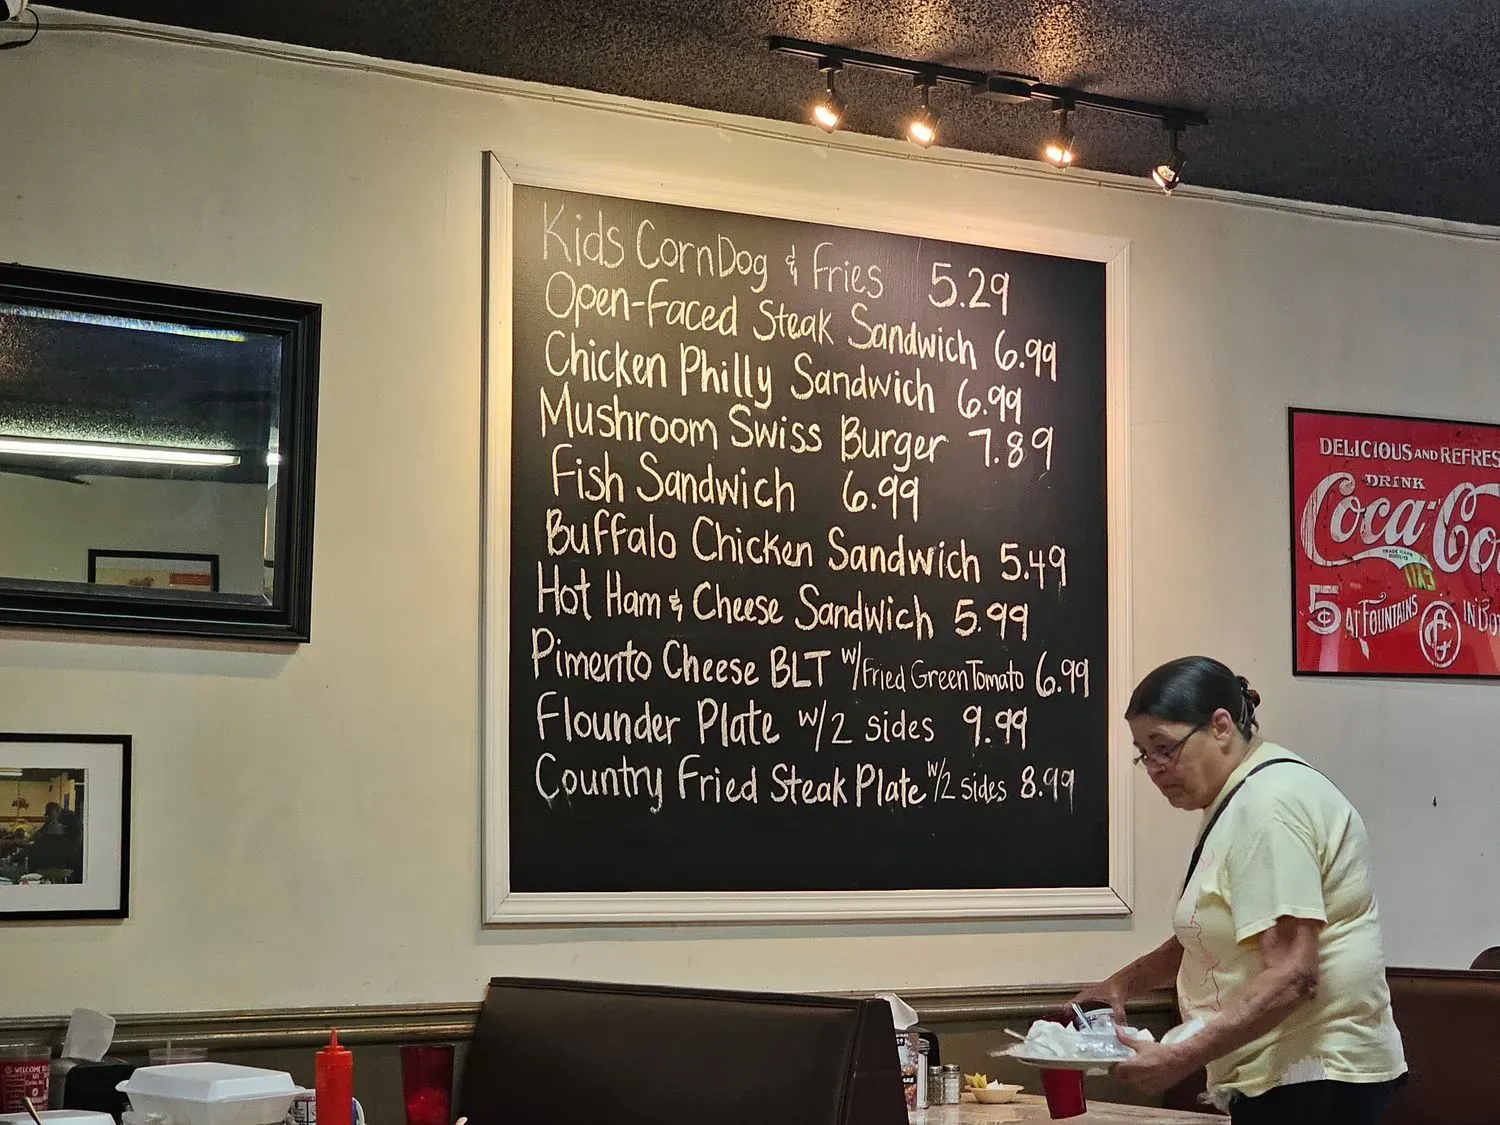 Kids CornDog & Fries 5.29
Open-Faced Steak Sandwich 6.99
Chicken Philly Sandwich 6.99
Mushroom Swiss Burger 7.89
Fish Sandwich 6.99
Buffalo Chicken Sandwich 5.49
Hot Ham & Cheese Sandwich 5.99
Pimento Cheese BLT w/Fried Green Tomato 6.99
Flounder Plate w/2 sides 9.99
Country Fried Steak Plate w/2 sides 8.99
DELICIOUS AND REFRES
DRINK
Coca-Co
5¢ AT FOUNTAINS
IN BO